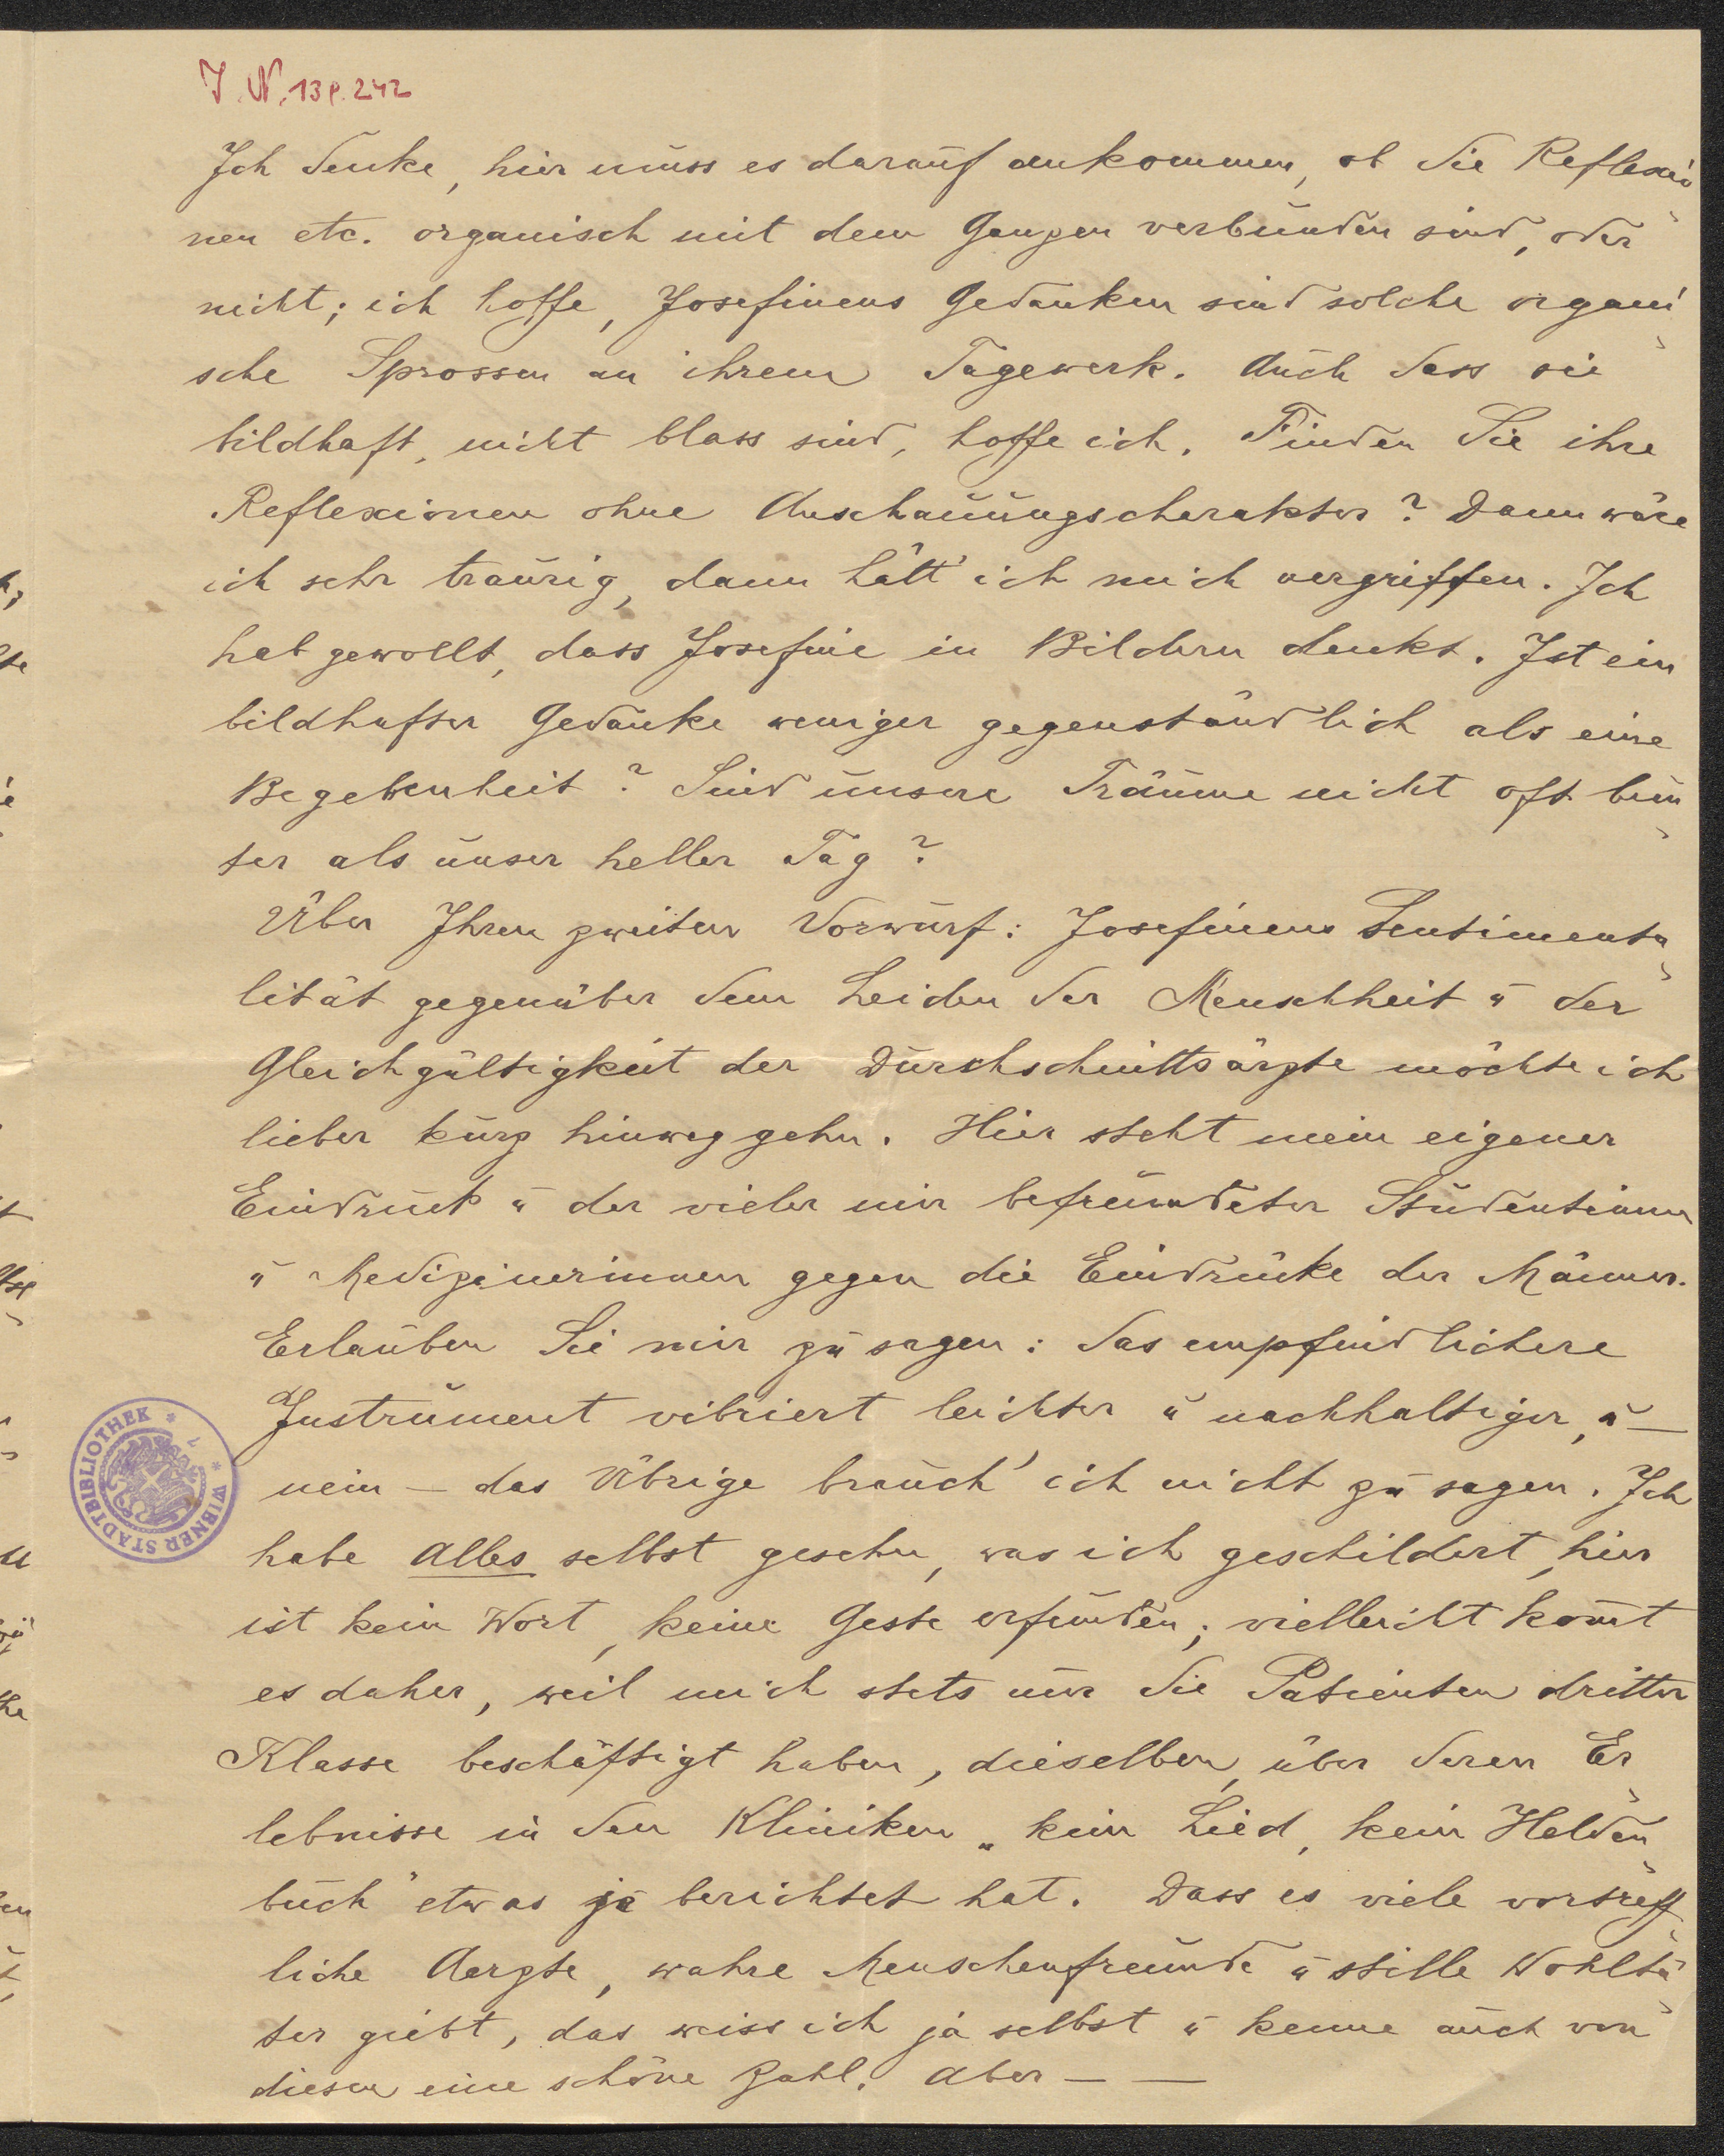 J.N. 138.242
Ich denke, hier muss es darauf ankommen, ob die Reflexio-
nen etc. organisch mit dem Ganzen verbunden sind, oder
nicht; ich hoffe, Josefinens Gedanken sind solche organi-
sche Sprossen an ihrem Tagewerk. Auch dass sie
bildhaft, nicht blass sind, hoffe ich. Finden Sie ihre
Reflexionen ohne Anschauungscharakter? Dann wäre
ich sehr traurig, dann hätt' ich mich vergriffen. Ich
hab gewollt, dass Josefine in Bildern denkt. Ist ein
bildhafter Gedanke weniger gegenständlich als eine
Begebenheit? Sind unsere Träume nicht oft bun-
ter als unser heller Tag?
Über Ihren zweiten Vorwurf: Josefinens Sentimenta-
lität gegenüber dem Leiden der Menschheit u der
Gleichgültigkeit der Durchschnittsärzte möchte ich
lieber kurz hinweggehn. Hier steht mein eigener
Eindruck u der vieler mir befreundeter Studentinnen
u Medizinerinnen gegen die Eindrücke der Männer.
Erlauben Sie mir zu sagen: das empfindlichere
Instrument vibriert leichter u nachhaltiger, u —
nein — das Übrige brauch' ich nicht zu sagen. Ich
habe Alles selbst gesehn, was ich geschildert, hier
ist kein Wort, keine Geste erfunden; vielleicht kom̄t
es daher, weil mich stets nur die Patienten dritter
Klasse beschäftigt haben, dieselben, über deren Er-
lebnisse in den Kliniken „kein Lied, kein Helden-
buch" etwas je berichtet hat. Dass es viele vortreff-
liche Aerzte, wahre Menschenfreunde u stille Wohltä-
ter giebt, das weiss ich ja selbst u kenne auch von
diesen eine schöne Zahl. Aber — —
WIENER STADTBIBLIOTHEK